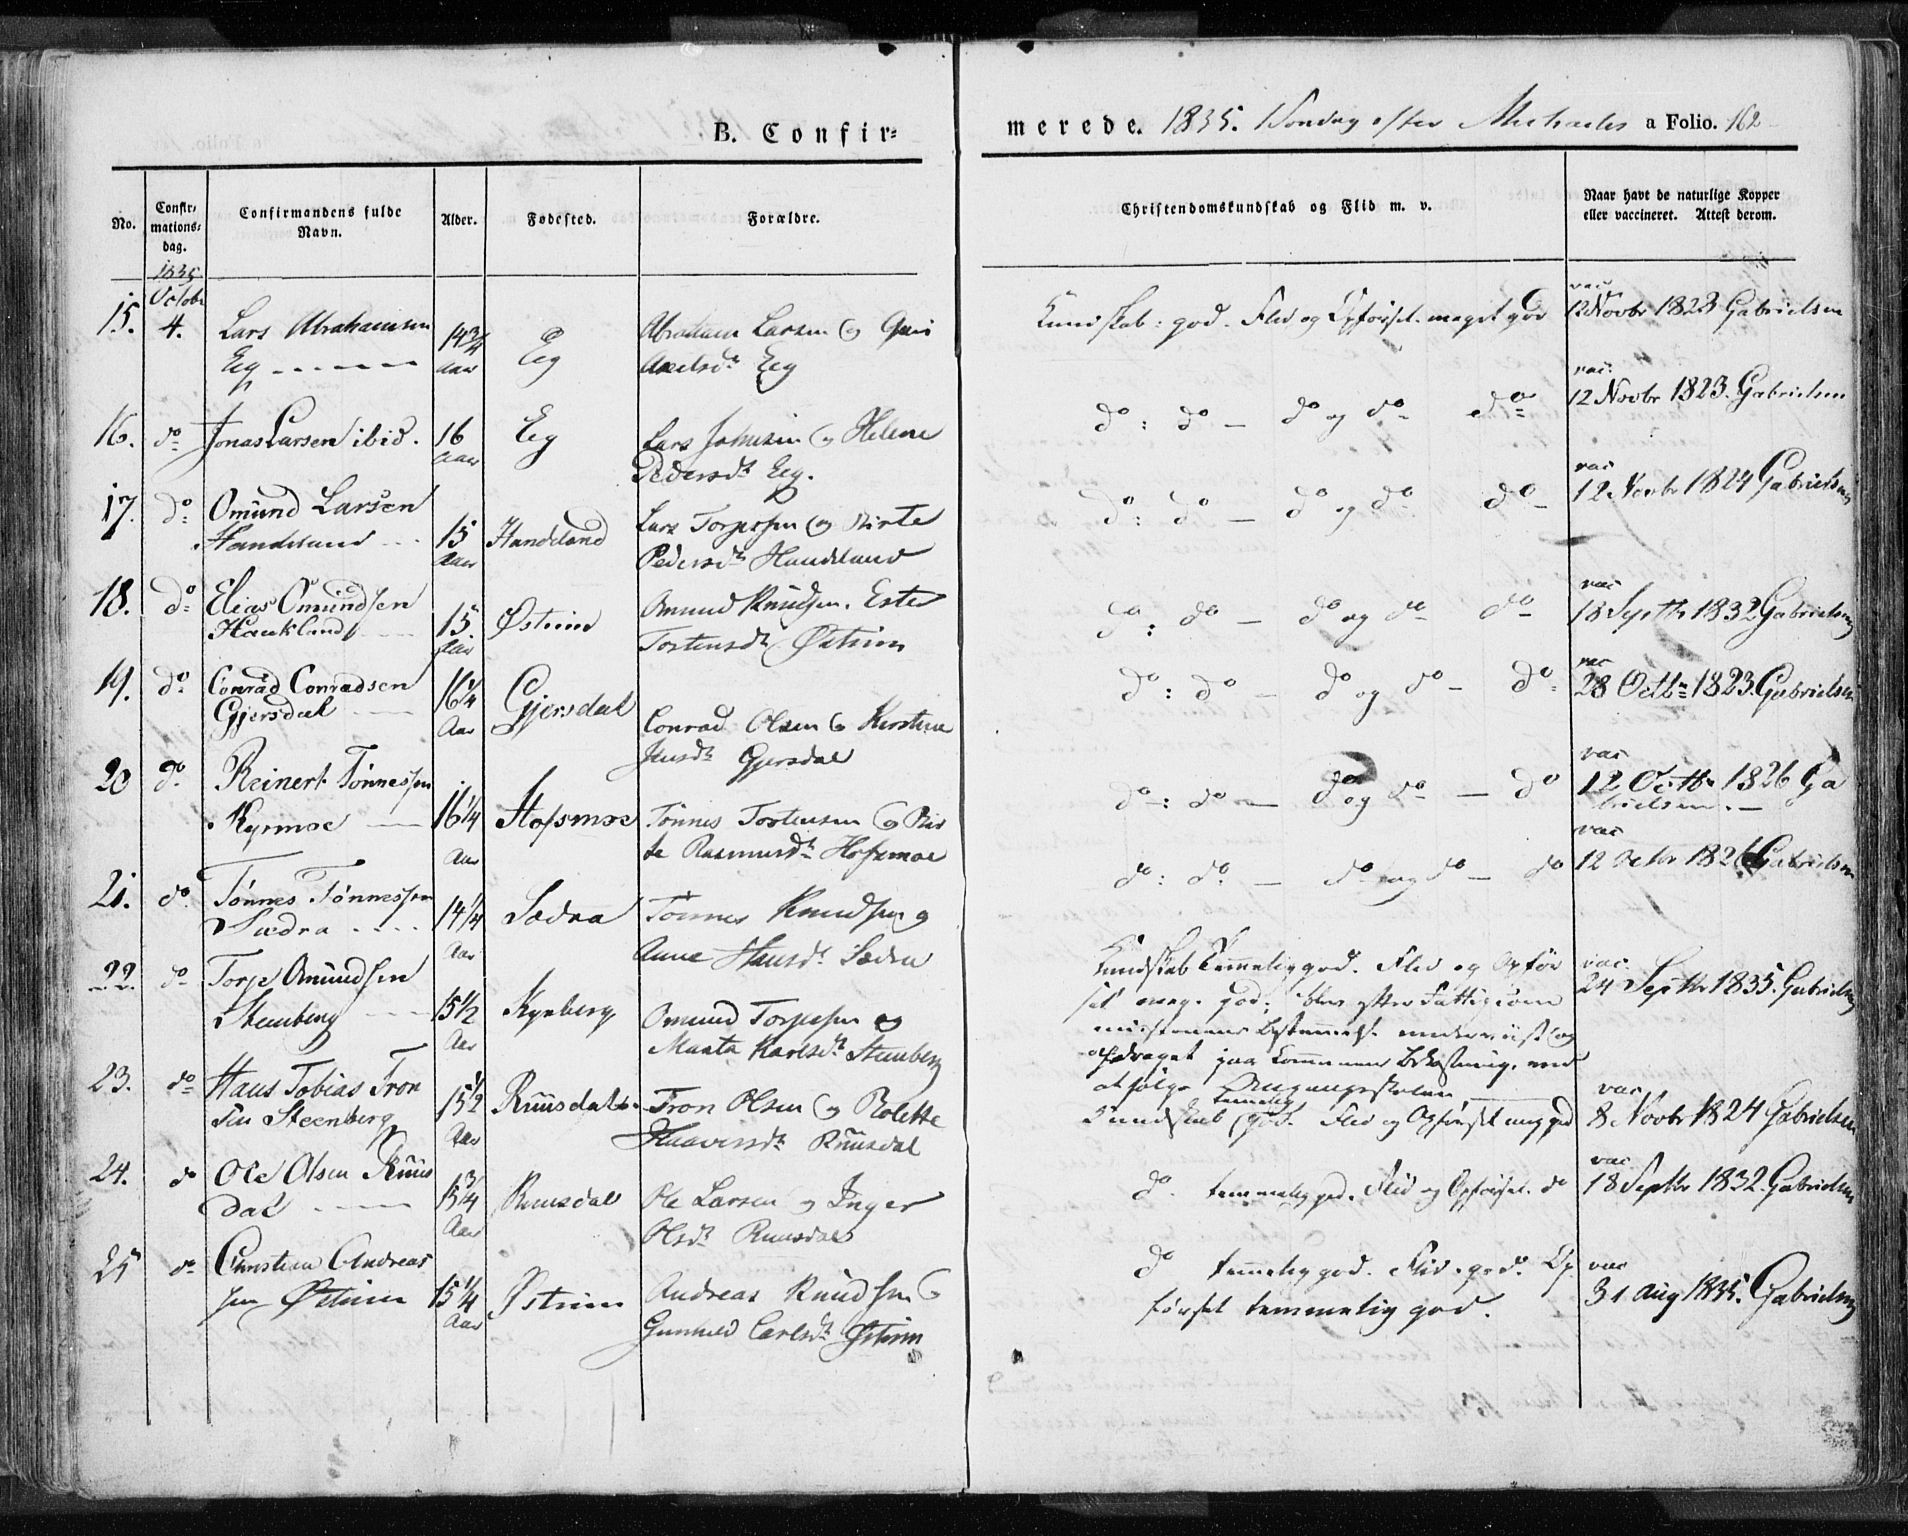 B. Confir=
merede. 1835. Søndag efter Michaelis a Folio. 162
No.
Confir=
mations=
dag.
Confirmandens fulde
Navn.
Alder.
Fødested.
Forældre.
Christendomskundskab og Flid m. v.
Naar havt de naturlige Kopper
eller vaccineret. Attest derom.
1835
Octobr
15. 4. Lars Abrahamsen
Eeg
14 3/4
Aar
Eeg
Abraham Larsen og
Axelsdt Eeg
Kundskab: god. Flid og Opførsel meget god
vac
12 Novbr 1823 Gabrielsen
16. do Jonas Larsen ibid.
16
Aar
Eeg
Lars Johnsen og Helene
Pedersdt Eeg.
do : do — do og do do
vac
12 Novbr 1823. Gabrielsen
17. do Omund Larsen
Handeland
15
Aar
Handeland
Lars Torgersen og Birte
Pedersdt Handeland
do : do — do og do do
vac
12 Novbr 1824 Gabrielsen
18. do Elias Omundsen
Haukland
15.
Aar
Østrim
Omund Knudsen. Ester
Tostensdt Østrim
do : do — do og do do
vac
18 Septbr 1832 Gabrielsen
19. do Conrad Conradsen
Gjersdal
16 1/4
Aar
Gjersdal
Conrad Olsen og Kirstine
Jensdt Gjersdal
do : do — do og do — do
vac
28 Octbr 1823. Gabrielsen
20 do Reinert Tønnessen
16 1/4
Aar
Hofsmoe
Tønnes Tostensen og Bir
te Rasmusdt Hofsmoe
do : do — do og do — do
vac
12 Octbr 1826 Ga
brielsen. —
21. do Tønnes Tønnessen
Sædra
14 1/4
Aar
Sædra
Tønnes Knudsen og
Anne Hansdt Sædra
do : do. — do og do — do
vac
12 Octbr 1826 Gabrielsen
22. do Torje Omundsen
Steenberg
15 1/2
Aar
Omund Torjessen og
Marta Karlsdt Steenberg
Kundskab temmelig god. Flid og Opfør
sel meg. god; blev efter Fattigcom
missionens Bestemmelse underviist og
opdraget paa Communens Bekostning, ved
at følge Omgangsskolen,
vac.
24 Septbr 1835. Gabrielsen
23. do Hans Tobias Tron
sen Steenberg
15 1/2
Aar
Ruusdal.
Tron Olsen og Rolette
Ruusdal
temmelig
Kundskab god. Flid og Opførsel meg god
vac
8 Novbr 1824 Gabrielsen
24. do Ole Olsen Ruus
dal
15 3/4
Aar
Ruusdal
Ole Larsen og Inger
Olsdt Ruusdal
do. temmelig god. Flid og Opførsel. do
vac
18 Septbr 1832. Gabrielsen
25 do Christian Andreas
sen Østrim
15 1/4
Aar
Østrim
Andreas Knudsen og
Gunhild Carlsdt Østrim
do temmelig god. Flid. god. Op
førsel temmelig god.
vac
31 Aug 1835. Gabrielsen